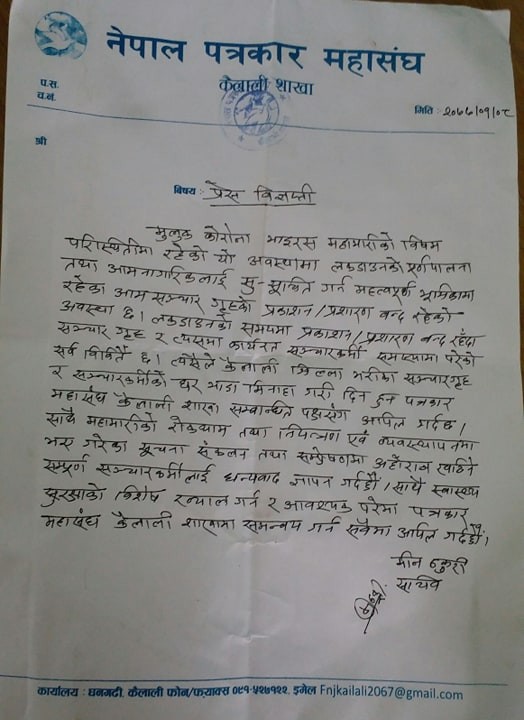 नेपाल पत्रकार महासंघ
कैलाली शाखा
प.स.
च.नं.
मिति : २०७७/०१/०८
श्री
बिषय : प्रेस विज्ञप्ती
मुलुक कोरोना भाइरस महामारीको विषम
परिस्थितीमा रहेको यो अवस्थामा लकडाउनको पूर्णपालना
तथा आमनागरिकलाई सु-सूचित गर्न महत्वपूर्ण भूमिकामा
रहेका आम सञ्चार गृहको प्रकाशन/प्रशारण बन्द रहेको
अवस्था छ। लकडाउनको समयमा प्रकाशन/प्रशारण बन्द रहँदा
सञ्चार गृह र त्यसमा कार्यरत सञ्चारकर्मी समस्यामा परेको
सर्व विदितै छ। त्यसैले कैलाली जिल्ला भरीका सञ्चारगृह
र सञ्चारकर्मीको घर भाडा मिनाहा गरी दिन हुन पत्रकार
महासंघ कैलाली शाखा सम्बन्धित पक्षसंग अपिल गर्दछ।
साथै महामारीको रोकथाम तथा नियन्त्रण एवं व्यवस्थापनमा
भए गरेका सूचना संकलन तथा सम्प्रेषणमा अहोरात्र खटिने
सम्पूर्ण सञ्चारकर्मीलाई धन्यवाद ज्ञापन गर्दछौं। साथै स्वास्थ्य
सुरक्षाको विशेष ख्याल गर्न र आवश्यक परेमा पत्रकार
महासंघ कैलाली शाखामा समन्वय गर्न सबैमा अपिल गर्दछौं।
सचिव
कार्यालय : धनगढी, कैलाली फोन/फ्याक्स ०९१-५२७१२२, इमेल Fnjkailali2067@gmail.com